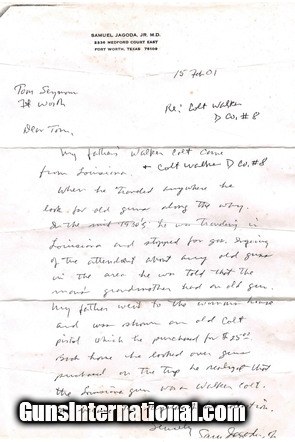 SAMUEL JAGODA, JR. M.D.
FORT WORTH, TEXAS
15 Feb 01
Tom
Ft Worth
Re: Colt Walker
D Co. # 8
Dear Tom,
My father's Walker Colt came
from Louisiana. + Colt Walker D Co. #8
When he traveled anywhere he
look for old guns along the way.
In the mid 1930's he was traveling in
Louisiana and stopped for gas. Inquiring
of the attendant about any old guns
in the area he was told that the
grandmother had an old gun.
My father went to the house
and was shown an old Colt
pistol which he purchased for $25
Back home he looked over guns
purchased on the trip he realized that
the Louisiana gun was a Walker Colt.
GunsInternational.com